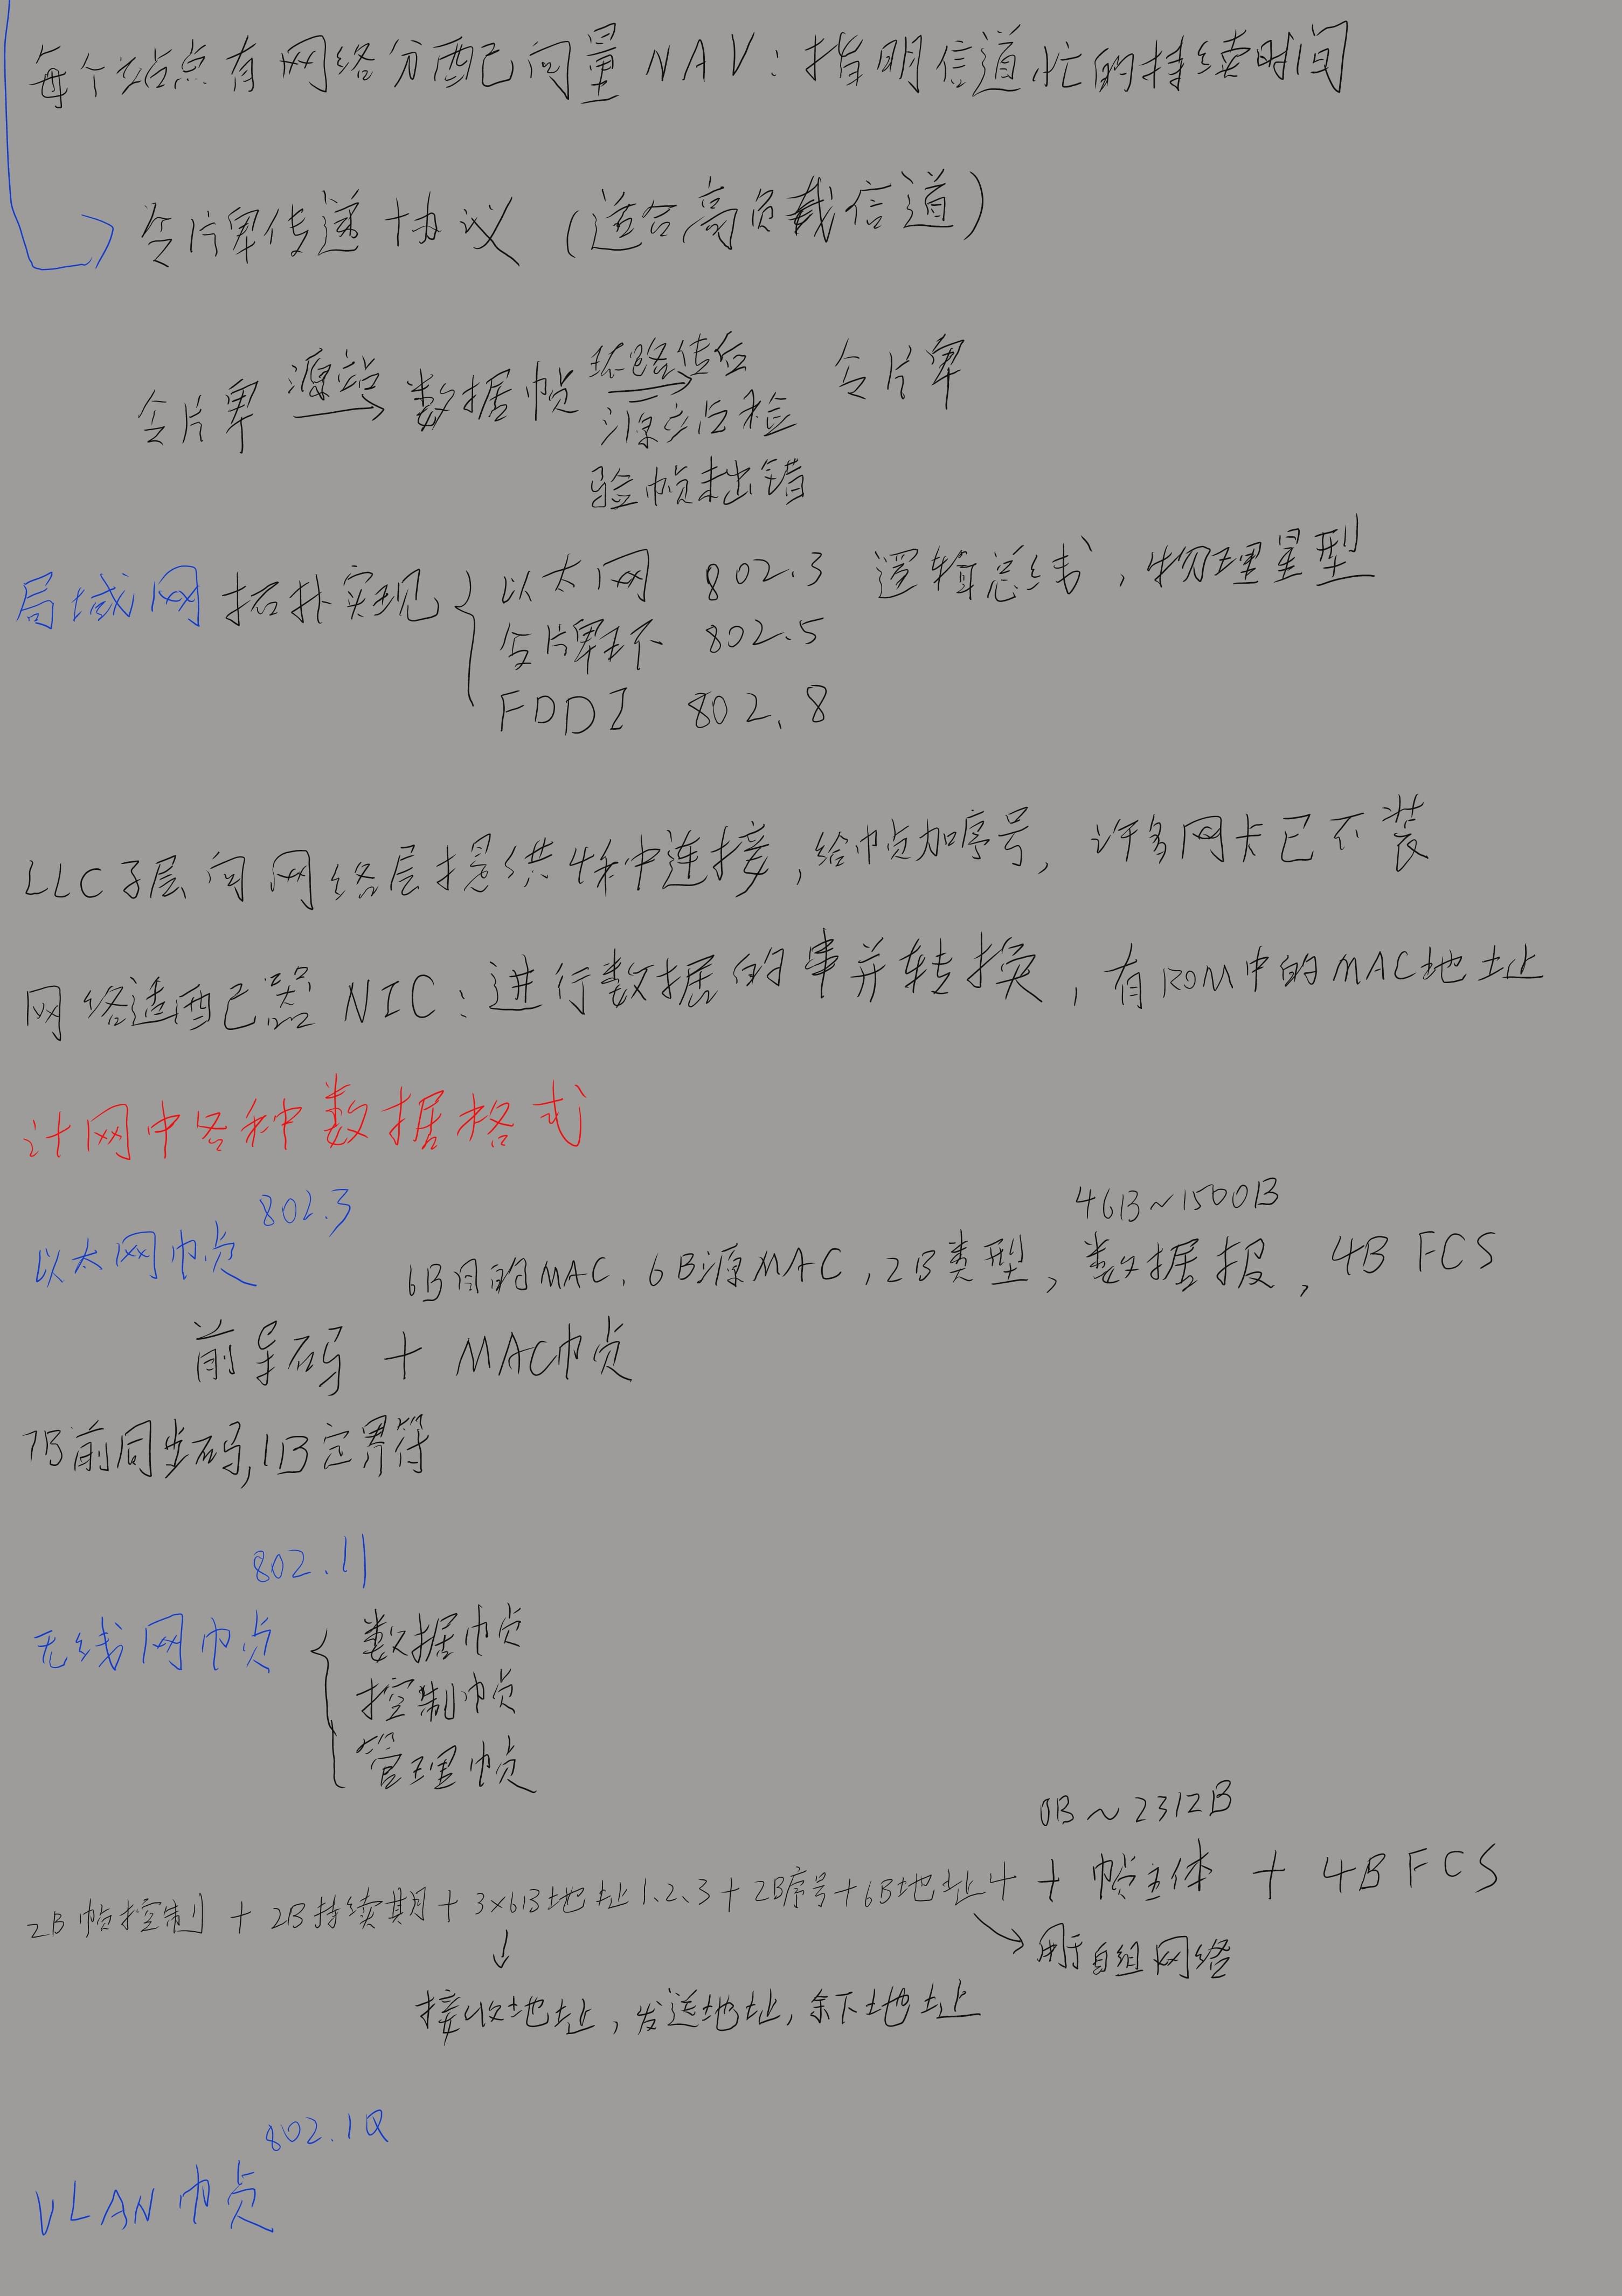 每个站点有网络分配向量NAV：指明信道忙的持续时间
令牌传递协议（适合高负载信道）
令牌 源站→ 数据帧 环路传后→ 令牌
源立后检
验帧未出错
局域网拓扑实现 { 以太网 802.3 逻辑总线，物理星型
令牌环 802.5
FDDI 802.8
LLC子层向网络层提供4种连接，给帧加序号，许多网卡已不装
网络适配器NIC：进行数据的串并转换，有ROM中的MAC地址
计网中各种数据格式
以太网帧 802.3
46B~1500B
6B目的MAC，6B源MAC，2B类型，数据报，4B FCS
前导码 + MAC帧
7B前同步码，1B定界符
802.11
无线网帧 { 数据帧
控制帧
管理帧
0B~2312B
2B帧控制 + 2B持续期 + 3×6B地址1.2.3 + 2B序号 + 6B地址4 + 帧主体 + 4B FCS
↓ 用于自组网络
接收地址，发送地址，余下地址
802.1Q
VLAN帧